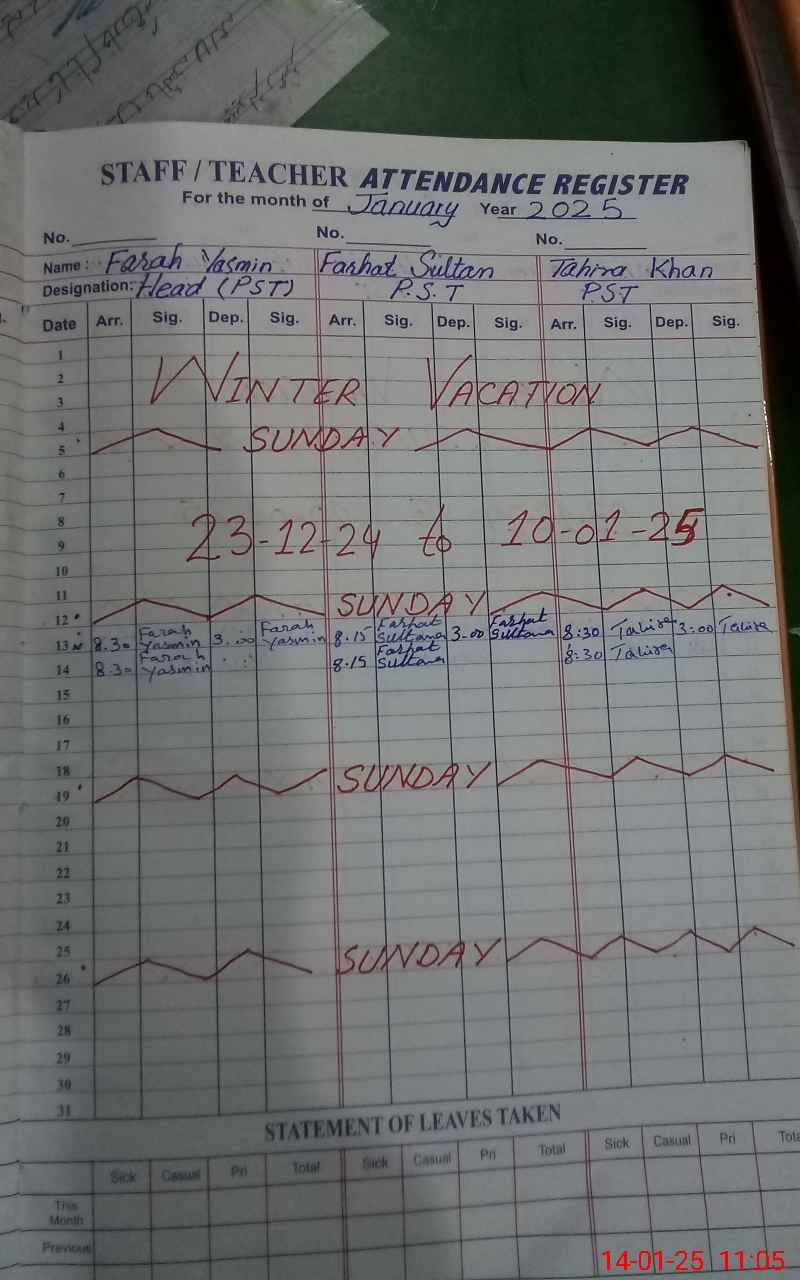 STAFF / TEACHER ATTENDANCE REGISTER
For the month of January Year 2025
No. No. No.
Name: Farah Yasmin Farhat Sultan Tahira Khan
Designation: Head (PST) P.S.T PST
Date Arr. Sig. Dep. Sig. Arr. Sig. Dep. Sig. Arr. Sig. Dep. Sig.
1
2 WINTER VACATION
3
4
5 SUNDAY
6
7
8 23-12-24 to 10-01-25
9
10
11 SUNDAY
12
13 8.30 Farah Yasmin 3.00 Farah Yasmin 8.15 Farhat Sultana 3.00 Farhat Sultana 8:30 Tahira 3:00 Tahira
14 8.30 Farah Yasmin 8.15 Farhat Sultana 8:30 Tahira
15
16
17
18 SUNDAY
19
20
21
22
23
24
25 SUNDAY
26
27
28
29
30
31
STATEMENT OF LEAVES TAKEN
Sick Casual Pri Total Sick Casual Pri Total Sick Casual Pri Tota
This
Month
Previous
14-01-25 11:05